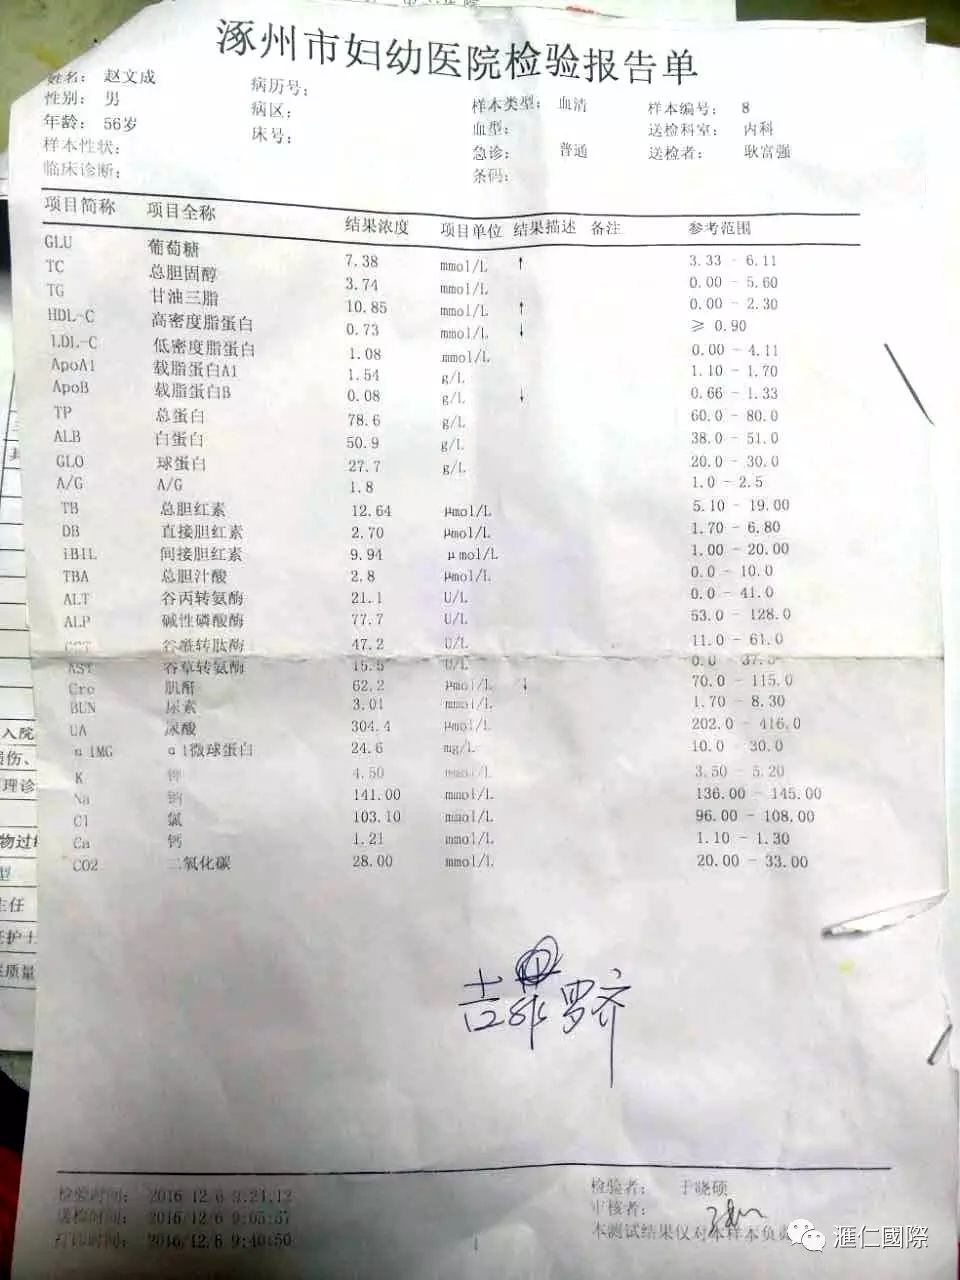 涿州市妇幼医院检验报告单
姓名： 赵文成 病历号： 样本类型： 血清 样本编号： 8
性别： 男 病区： 血型： 送检科室： 内科
年龄： 56岁 床号： 急诊： 普通 送检者： 耿富强
样本性状： 条码：
临床诊断：
项目简称 项目全称 结果浓度 项目单位 结果描述 备注 参考范围
GLU 葡萄糖 7.38 mmol/L ↑ 3.33 - 6.11
TC 总胆固醇 3.74 mmol/L 0.00 - 5.60
TG 甘油三脂 10.85 mmol/L ↑ 0.00 - 2.30
HDL-C 高密度脂蛋白 0.73 mmol/L ↓ ≥ 0.90
LDL-C 低密度脂蛋白 1.08 mmol/L 0.00 - 4.11
ApoA1 载脂蛋白A1 1.54 g/L 1.10 - 1.70
ApoB 载脂蛋白B 0.08 g/L ↓ 0.66 - 1.33
TP 总蛋白 78.6 g/L 60.0 - 80.0
ALB 白蛋白 50.9 g/L 38.0 - 51.0
GLO 球蛋白 27.7 g/L 20.0 - 30.0
A/G A/G 1.8 1.0 - 2.5
TB 总胆红素 12.64 μmol/L 5.10 - 19.00
DB 直接胆红素 2.70 μmol/L 1.70 - 6.80
iBIL 间接胆红素 9.94 μmol/L 1.00 - 20.00
TBA 总胆汁酸 2.8 μmol/L 0.0 - 10.0
ALT 谷丙转氨酶 21.1 U/L 0.0 - 41.0
ALP 碱性磷酸酶 77.7 U/L 53.0 - 128.0
谷酰转肽酶 47.2 U/L 11.0 - 61.0
AST 谷草转氨酶 15.5 U/L 0.0 - 37.5
Cre 肌酐 62.2 μmol/L ↓ 70.0 - 115.0
BUN 尿素 3.01 mmol/L 1.70 - 8.30
UA 尿酸 304.4 μmol/L 202.0 - 416.0
α1MG α1微球蛋白 24.6 mg/L 10.0 - 30.0
K 钾 4.50 mmol/L 3.50 - 5.20
Na 钠 141.00 mmol/L 136.00 - 145.00
Cl 氯 103.10 mmol/L 96.00 - 108.00
Ca 钙 1.21 mmol/L 1.10 - 1.30
CO2 二氧化碳 28.00 mmol/L 20.00 - 33.00
吉非罗齐
检验时间： 2016 12/6 9:21:12 检验者： 于晓硕
送检时间： 2016/12/6 9:05:57 审核者：
打印时间： 2016/12/6 9:40:50 本测试结果仅对本样本负责
1
滙仁國際
入院
损伤、
理诊
物过
型
主任
护士
质量